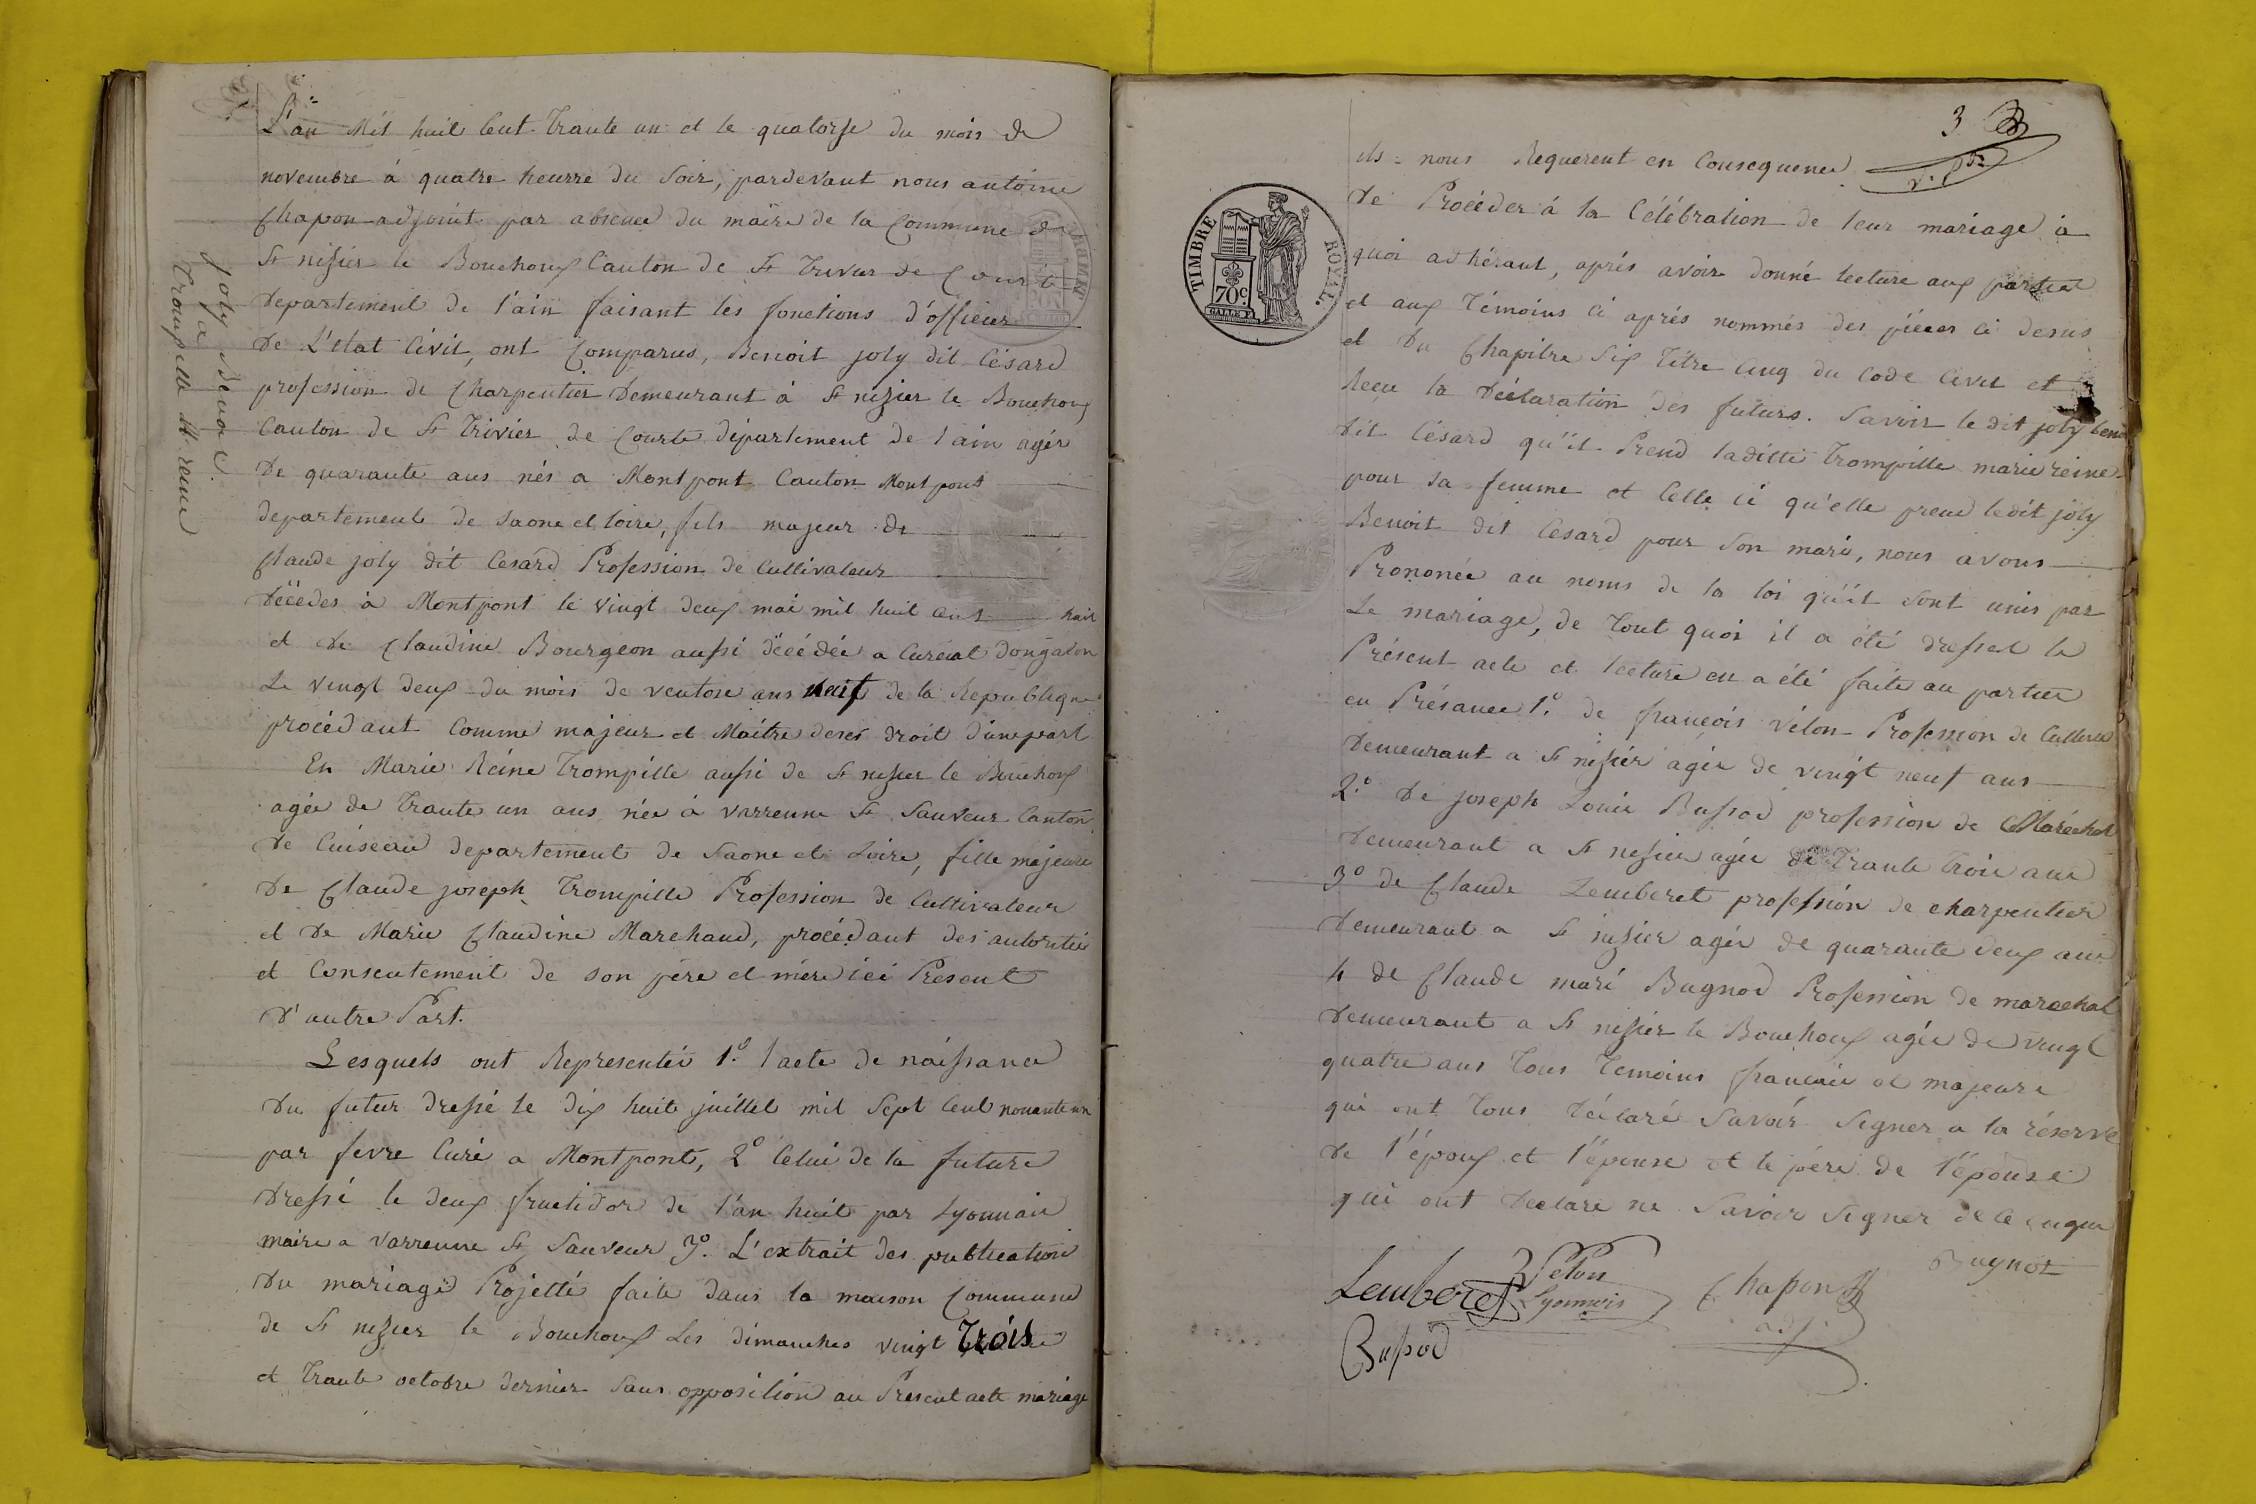 L'an Mil huil Cent Trante un et le quatorse du mois de
novembre à quatre heurre du Soir, pardevant nous antoine
Chapon adjoint par absence du maire de la Commune de
St nisier le Bouchoux Canton de St Triver de Courte
Departement de l'ain faisant les fonctions d'officier
De L'etat Civil, ont Comparus, Benoit joly dit Césard
profession de Charpentier Demeurant à St nizier le Bouchoux
Canton de St Trivier de Courte département de l'ain agér
De quarante ans nés a Montpont Canton Montpont
departement de Saone et loire, fils majeur de
Claude joly dit Cesard Profession de Cultivateur
Décédés à Montpont le vingt deux mai mil huil cent huit
et De Claudine Bourgeon aussi décédée a Curciat Dongalon
Le vingt deux du mois de ventose ans neuf de la Republique
procédant Comme majeur et Maître de ses droit d'une part
En Marie Reine Trompille aussi de St nisier le Bouchoux
agée de Trante un ans née à Varrenne St Sauveur Canton
De Cuiseau departement de Saone et Loire, fille majeure
De Claude joseph Trompille Profession de Cultivateur
et De Marie Claudine Marchand, procédant des autorités
et Consentement de son père et mère ici Présent
D'autre Part.
Lesquels ont Representés 1.° l'acte de naissance
Du futur dressé le dix huit juillet mil Sept Cent nonante un
par fevre Curé a Montpont, 2° Celui de la future
Dressé le deux fructidor de l'an huit par Lyonnais
maire a Varrenne St Sauveur 3°. L'extrait des publication
Du mariage Projetté faite dans la maison Commune
de St nizier le Bouchoux Les dimanches vingt Trois
et Trante octobre dernier Sans opposition au Présent acte mariage
joly Benoit
Trompille M. reine
3
ils nous Requerent en Consequence
De Procéder á la Célébration de leur mariage à
quoi adhérant, aprés avoir donné lecture aux parties
et aux Témoins ci aprés nommés des piéces ci desus
et du Chapitre Six Titre Cinq du Code Civil et
Recu la Déclaration des futurs. Savoir le dit joly benoit
dit Césard qu'il Prend laditte Trompille marie reine
pour sa femme et Celle ci qu'elle prend ledit joly
Benoit dit Césard pour Son mari, nous avons
Prononcé au noms de la loi qu'il sont unis par
Le mariage, de Tout quoi il a été dressel le
Présent acte et lecture en a été faite au partie
en Présance 1.° de francois Vélon Profession de
Demeurant a St nisier agée de vingt neuf ans
2.° De joseph Louis Bussod profession de Maréchal
Demeurant a St nisier agée de Trante Trois ans
3° de Claude Lemberet profession de charpentier
Demeurant a St nisier agée de quarante deux ans
4 de Claude mari Bugnod Profession de marechal
Demeurant a St nisier le Bouchoux agée de vingt
quatre ans Tous Temoins francais et majeurs
qui ont Tous déclaré Savoir Signer a la réserve
De l'époux et l'épouse et le pére de l'épouse
qui ont declare ne Savoir Signer de ce enquis
Velon
Bugnot
Lemberet
Lyonnois
Chapon
adj.
Bussod
TIMBRE ROYAL.
70c